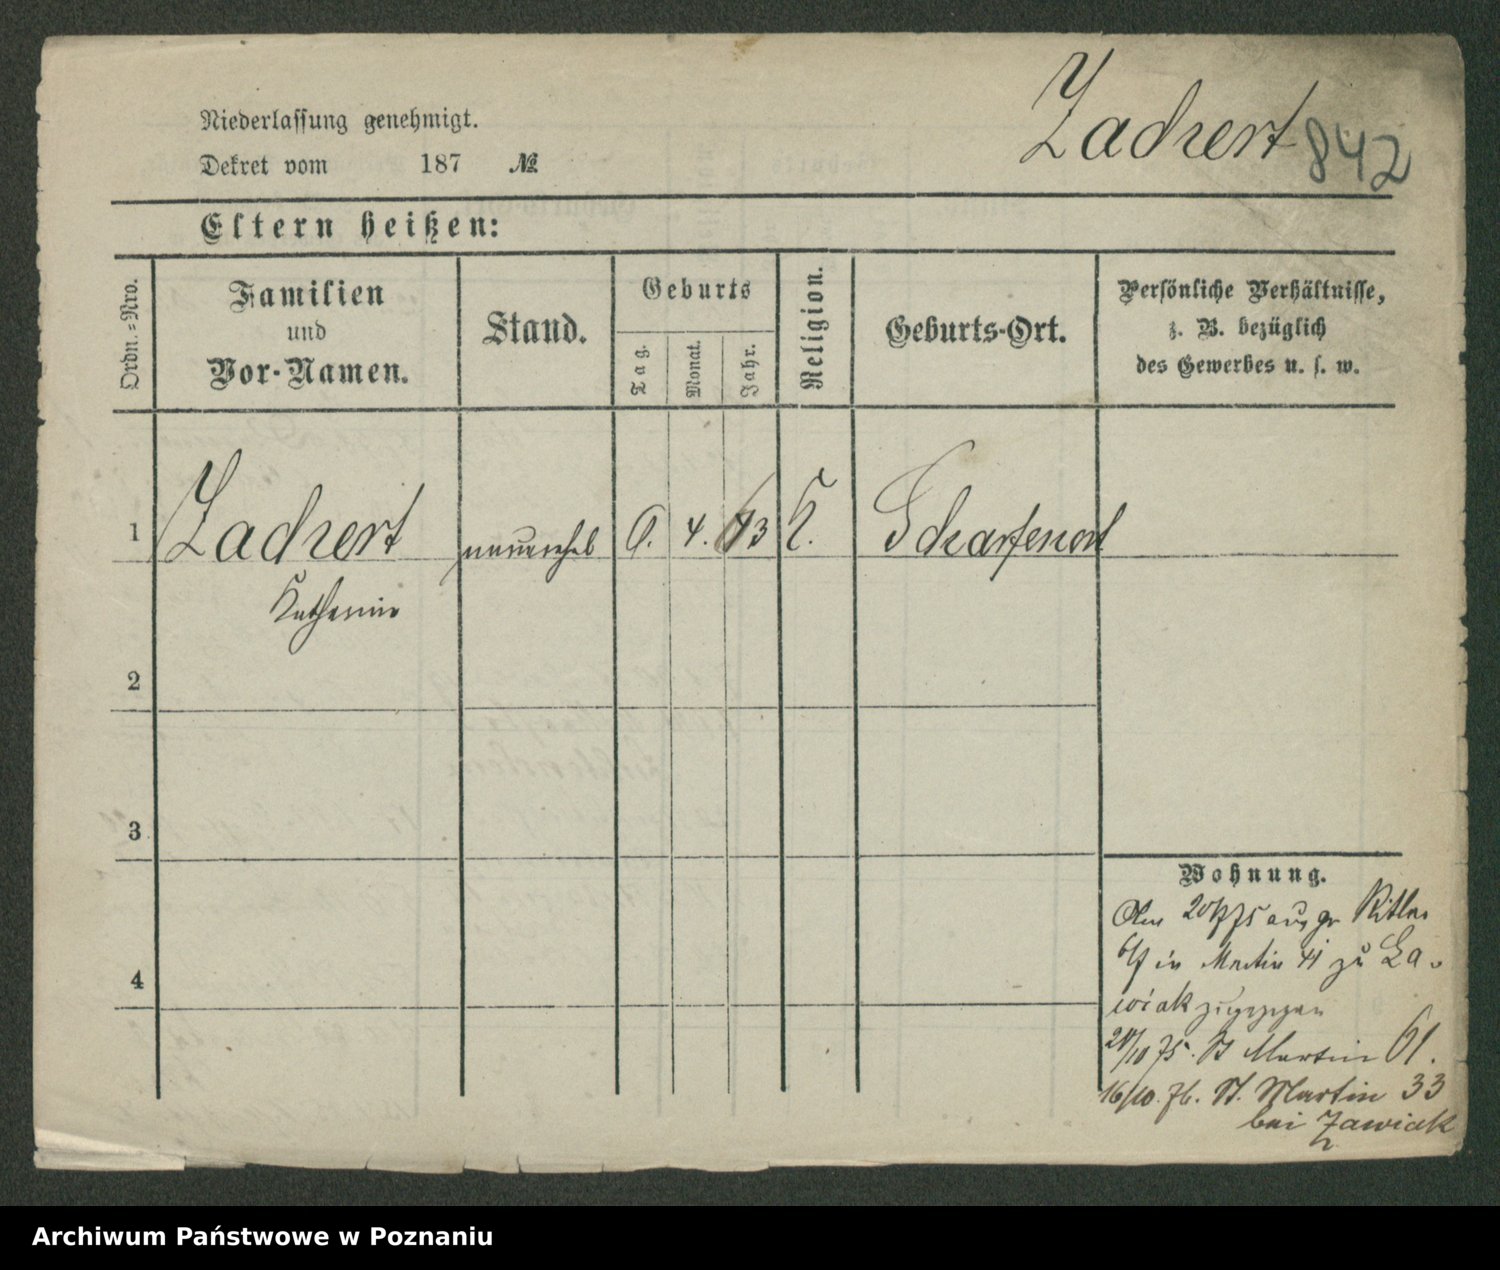 Niederlassung genehmigt.
Zachert 842
Dekret vom 187 №
Eltern heißen:
Ordn.=Nro.
Familien
und
Vor-Namen.
Stand.
Geburts
Tag.
Monat.
Jahr.
Religion.
Geburts-Ort.
Persönliche Verhältnisse,
z. B. bezüglich
des Gewerbes u. s. w.
1 Zachert unverehel 4. 43 K. Scharfenort
Katharina
2
3
4
Wohnung.
Am 75 aus gr Ritter
in Martin zu Za-
wiak zugezogen
/10 75. St Martin 61.
16/10. 76. St. Martin 33
bei Zawiak
Archiwum Państwowe w Poznaniu